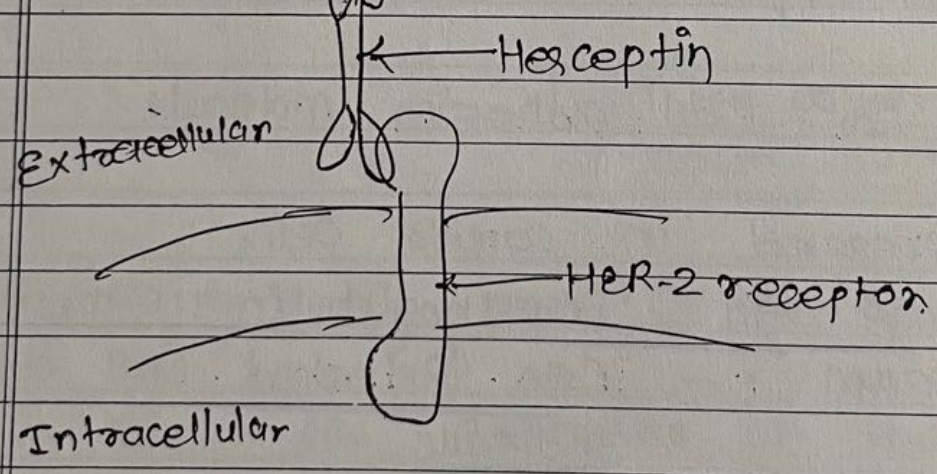 Herceptin
Extracellular
HER-2 receptor.
Intracellular